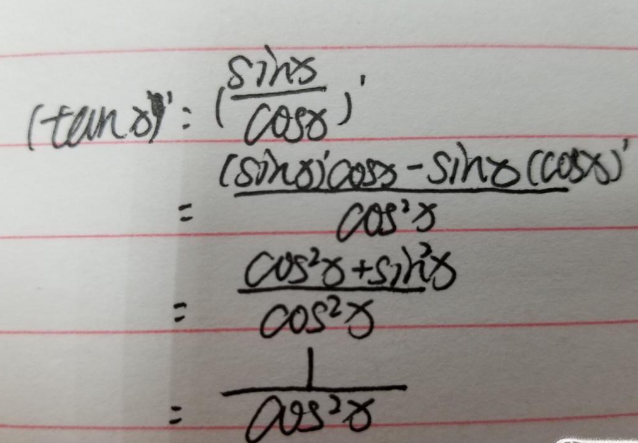 (tanx)' = (sinx/cosx)'
= ((sinx)'cosx - sinx(cosx)')/cos²x
= (cos²x + sin²x)/cos²x
= 1/cos²x